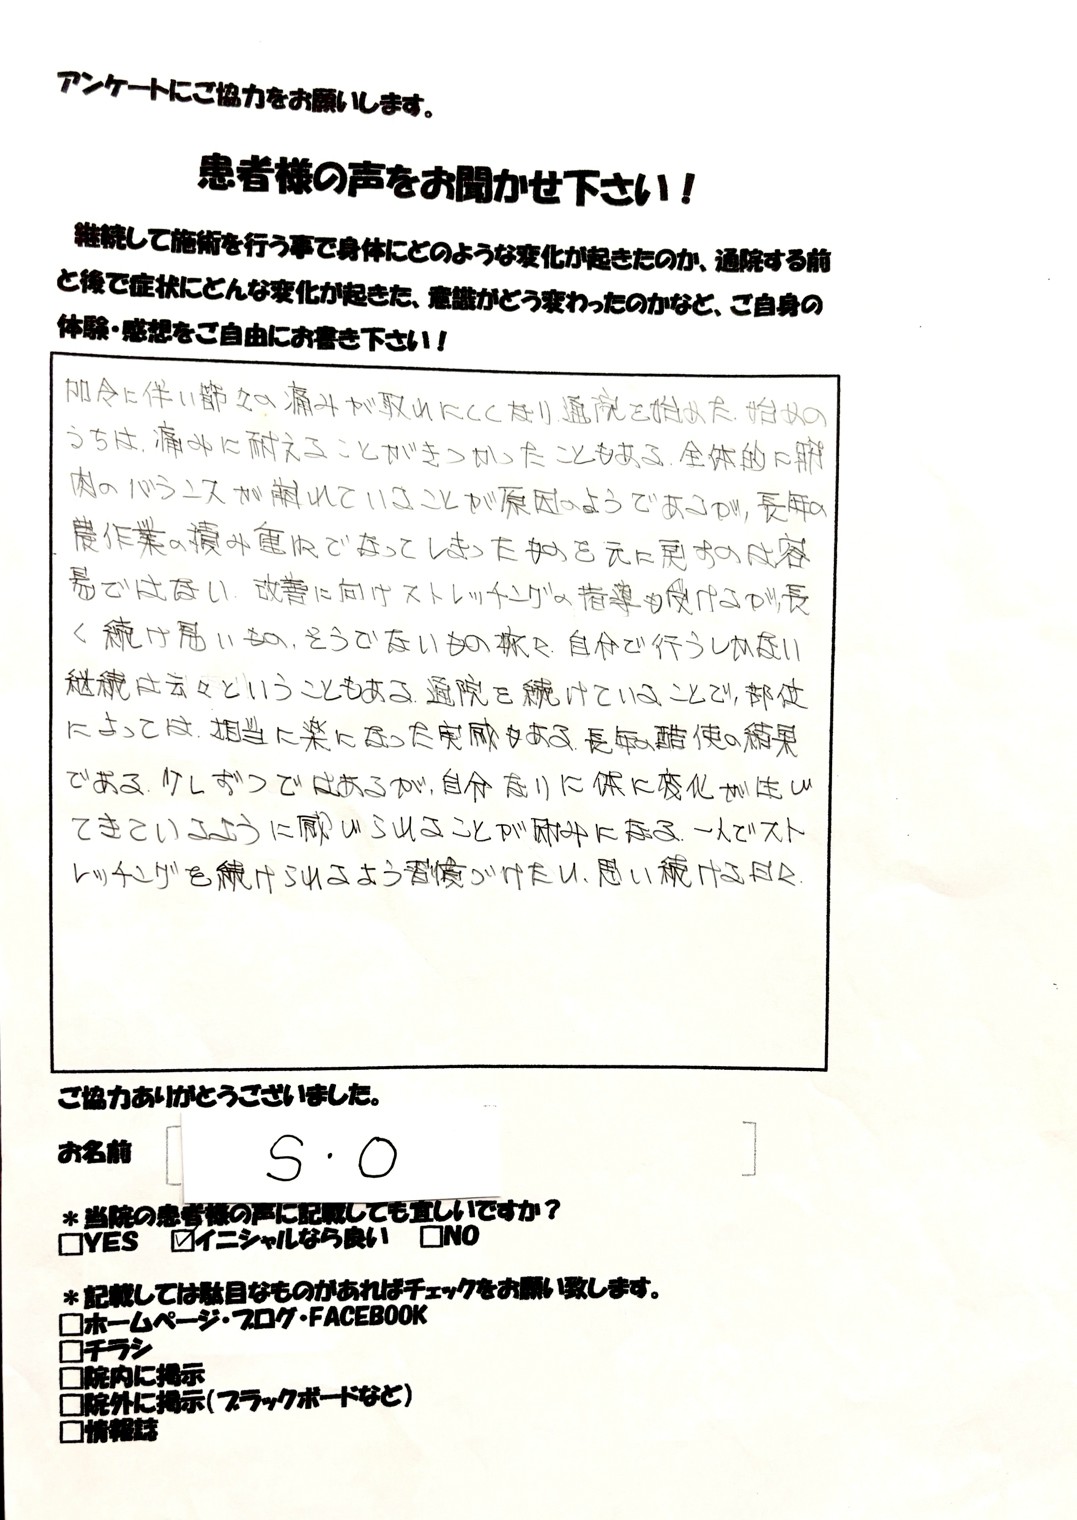 アンケートにご協力をお願いします。
患者様の声をお聞かせ下さい！
継続して施術を行う事で身体にどのような変化が起きたのか、通院する前
と後で症状にどんな変化が起きた、意識がどう変わったのかなど、ご自身の
体験・感想をご自由にお書き下さい！
加令に伴い節々の痛みが取れにくくなり通院を始めた。始めの
うちは、痛みに耐えることがきつかったこともある。全体的に筋
肉のバランスが崩れていることが原因のようであるが、長年の
農作業の積み重ねでなってしまったものを元に戻すのは容
易ではない。改善に向けストレッチングの指導も受けるが、長
く続け易いもの、そうでないもの様々。自分で行うしかない
継続は云々ということもある。通院を続けていることで、部位
によっては、相当に楽になった実感もある。長年の酷使の結果
である。少しずつではあるが、自分なりに体に変化が生じ
てきているように感じられることが励みになる。一人でスト
レッチングを続けられるよう習慣づけたい、思い続ける日々。
ご協力ありがとうございました。
お名前 [ S・O ]
＊当院の患者様の声に記載しても宜しいですか？
□YES ☑イニシャルなら良い □NO
＊記載しては駄目なものがあればチェックをお願い致します。
□ホームページ・ブログ・FACEBOOK
□チラシ
□院内に掲示
□院外に掲示(ブラックボードなど)
□情報誌